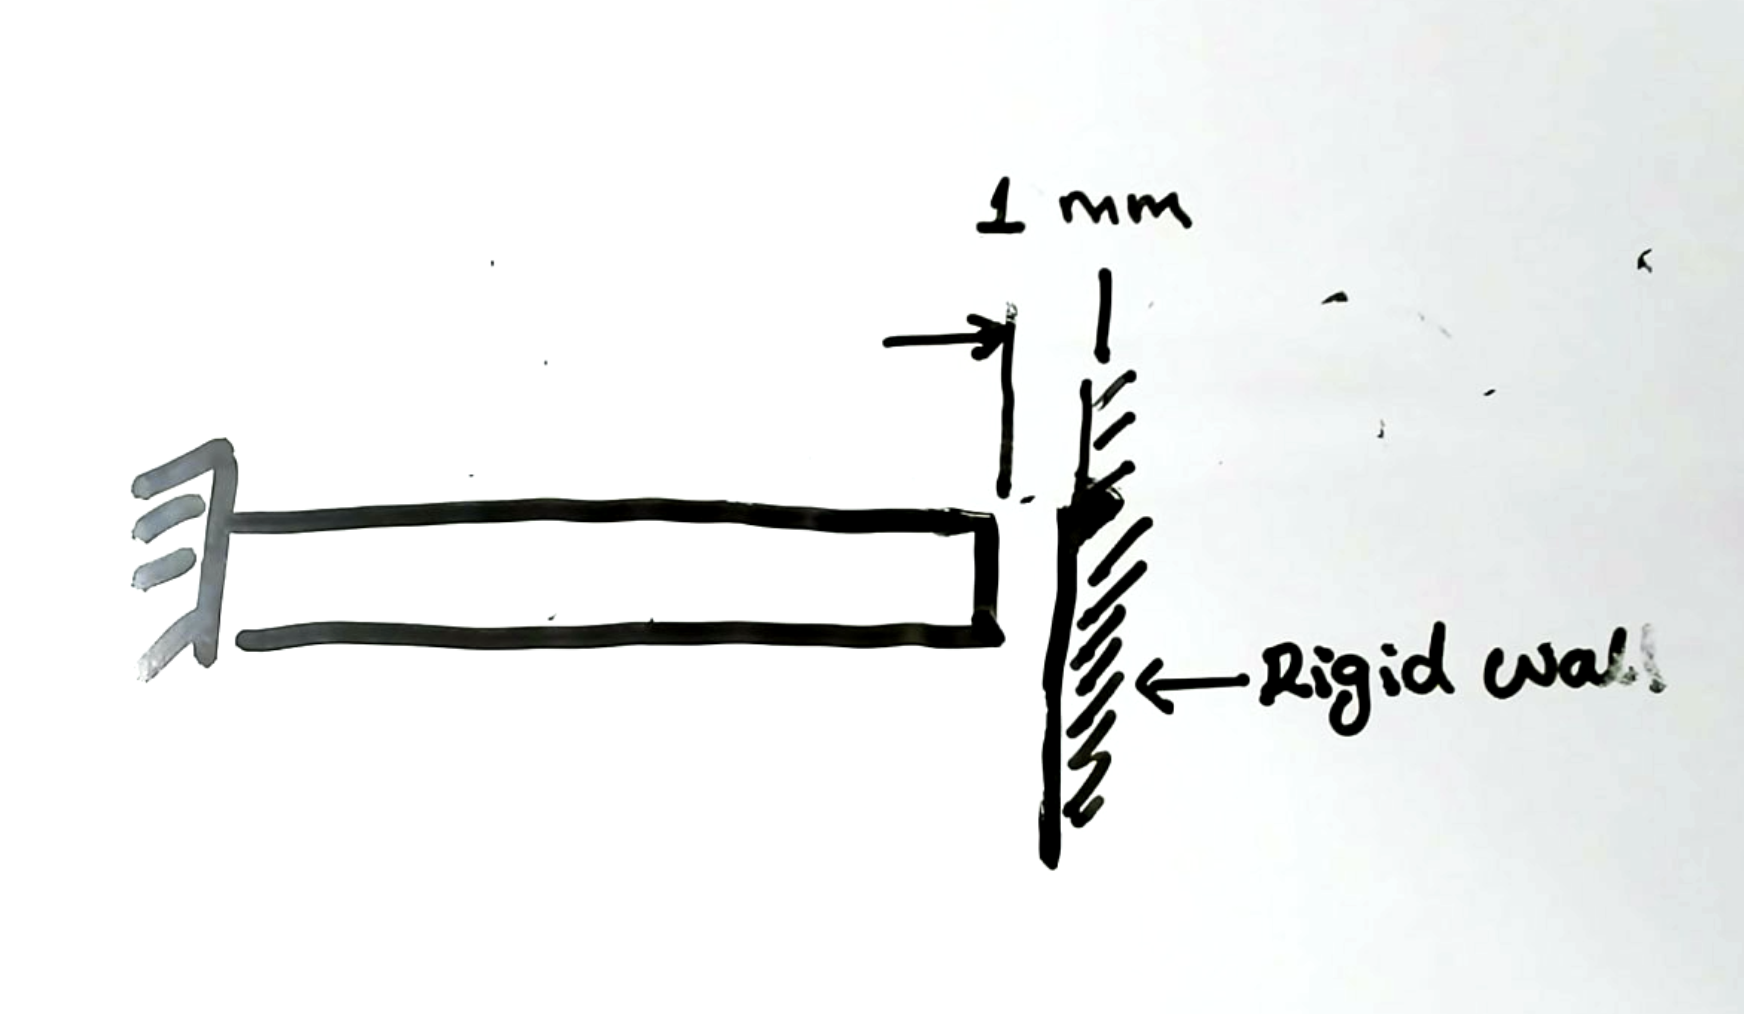 1 mm
Rigid wall